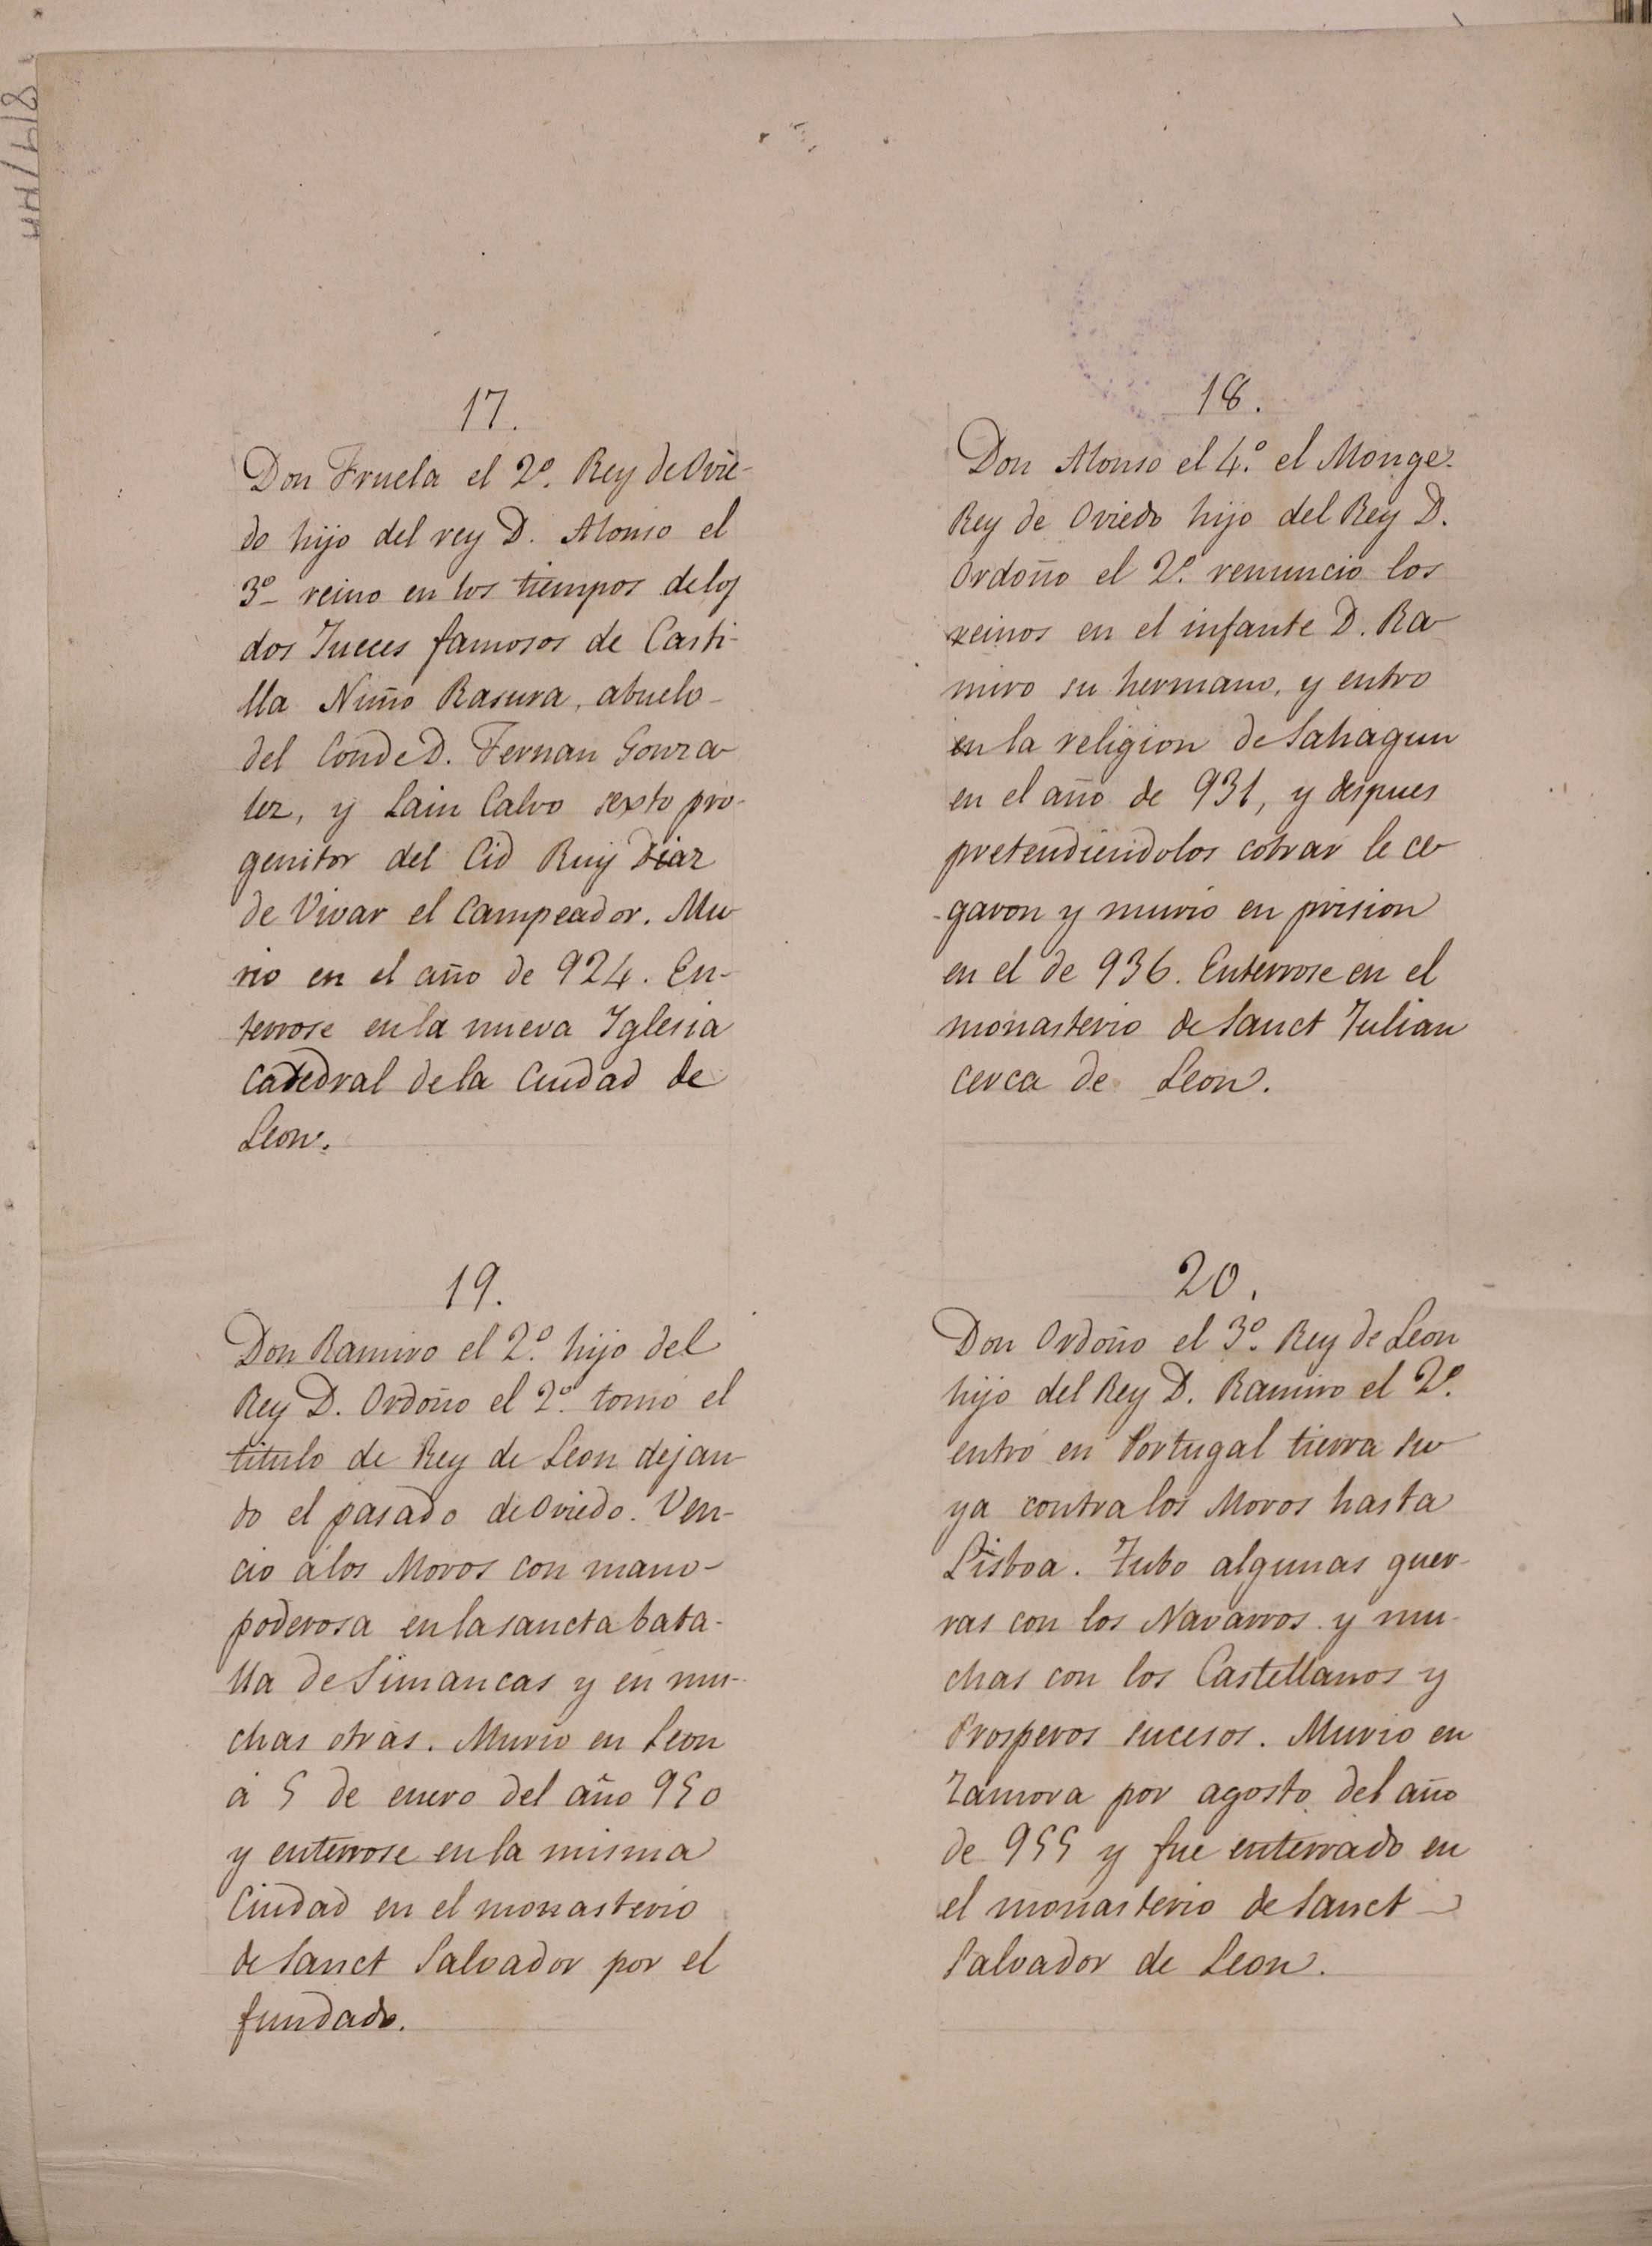 17.
Don Fruela el 2º. Rey de Ovie-
do hijo del rey D. Alonso el
3º reino en los tiempos de los
dos Jueces famosos de Casti-
lla Nuño Rasura, abuelo
del Conde D. Fernan Gonza
lez, y Lain Calvo sexto pro-
genitor del Cid Ruy Diaz
de Vivar el Campeador. Mu
rio en el año de 924. En-
terrose en la nueva Iglesia
Catedral de la Ciudad de
Leon.
18.
Don Alonso el 4.º el Monge.
Rey de Oviedo hijo del Rey D.
Ordoño el 2º. renunció los
reinos en el infante D. Ra
miro su hermano, y entro
en la religion de Sahagun
en el año de 931, y despues
pretendiendolos cobrar le ce
garon y murió en prision
en el de 936. Enterrose en el
monasterio de Sanct Julian
cerca de Leon.
19.
Don Ramiro el 2.º hijo del
Rey D. Ordoño el 2.º tomó el
titulo de Rey de Leon dejan
do el pasado de Oviedo. Ven-
cio á los Moros con mano-
poderosa en la sancta bata-
lla de Simancas y en mu-
chas otras. Murió en Leon
á 5 de enero del año 950
y enterrose en la misma
Ciudad en el monasterio
de Sanct Salvador por el
fundado.
20.
Don Ordoño el 3º. Rey de Leon
hijo del Rey D. Ramiro el 2º.
entró en Portugal tierra su
ya contra los Moros hasta
Lisboa. Tubo algunas guer-
ras con los Navarros y mu-
chas con los Castellanos y
Prosperos sucesos. Murio en
Zamora por agosto del año
de 955 y fue enterrado en
el monasterio de Sanct
Salvador de Leon.